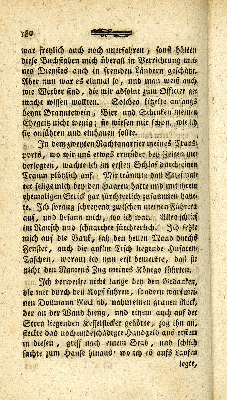 180
war freylich auch noch unerfahren, sonst hätten
diese Buchstaben mich überall in Verrichtung mei-
nes Dienstes auch in fremden Ländern geschützt.
Aber nun war es einmal so, und man weiß auch
wie Werber sind, die mir absolut zum Officier ge-
macht wissen wollten. Solches anfangs
beym Branntewein, Bier und Schenken meinen
Ehrgeitz nicht wenig; sie wissen mir schon, wie ich
sie anführen und einhauen sollte.
In dem zweyten Nachtquartier meines Trans-
ports, wo wir uns etwas ermüdet bey Zeiten nie-
derlegten, wachte ich im ersten Schlaf durch einen
Traum plötzlich auf. Mir träumte das
selige mich bey den Haaren hätte und mit ihrem
ehemaligen Strick gar fürchterlich zusammen
te. Ich sprang schreyend zwischen meinen Führern
auf, und besann mich, wo ich war. Alles schlief
im Rausch und schnarchte fürchterlich. Ich setzte
mich auf die Bank, sah den hellen Mond durchs
Fenster, auch die
Taschen, woran ich nun erst bemerkte, daß sie
nicht den Namens Zug meines Königs führten.
Ich verweilte nicht lange bey den Gedanken,
die mir durch den Kopf fuhren, sondern warf mei-
nen Rock ab, nahm einen grünen Rock,
der an der Wand hieng, und einem auch auf der
Streu liegenden Kesselflicker gehörte, zog ihn an,
steckte das noch unbeschädigte Handgeld aus erstern
in diesen, griff nach einem Stab, und schlich
sachte zum Hause hinaus, wo ich es aufs Laufen
legte,